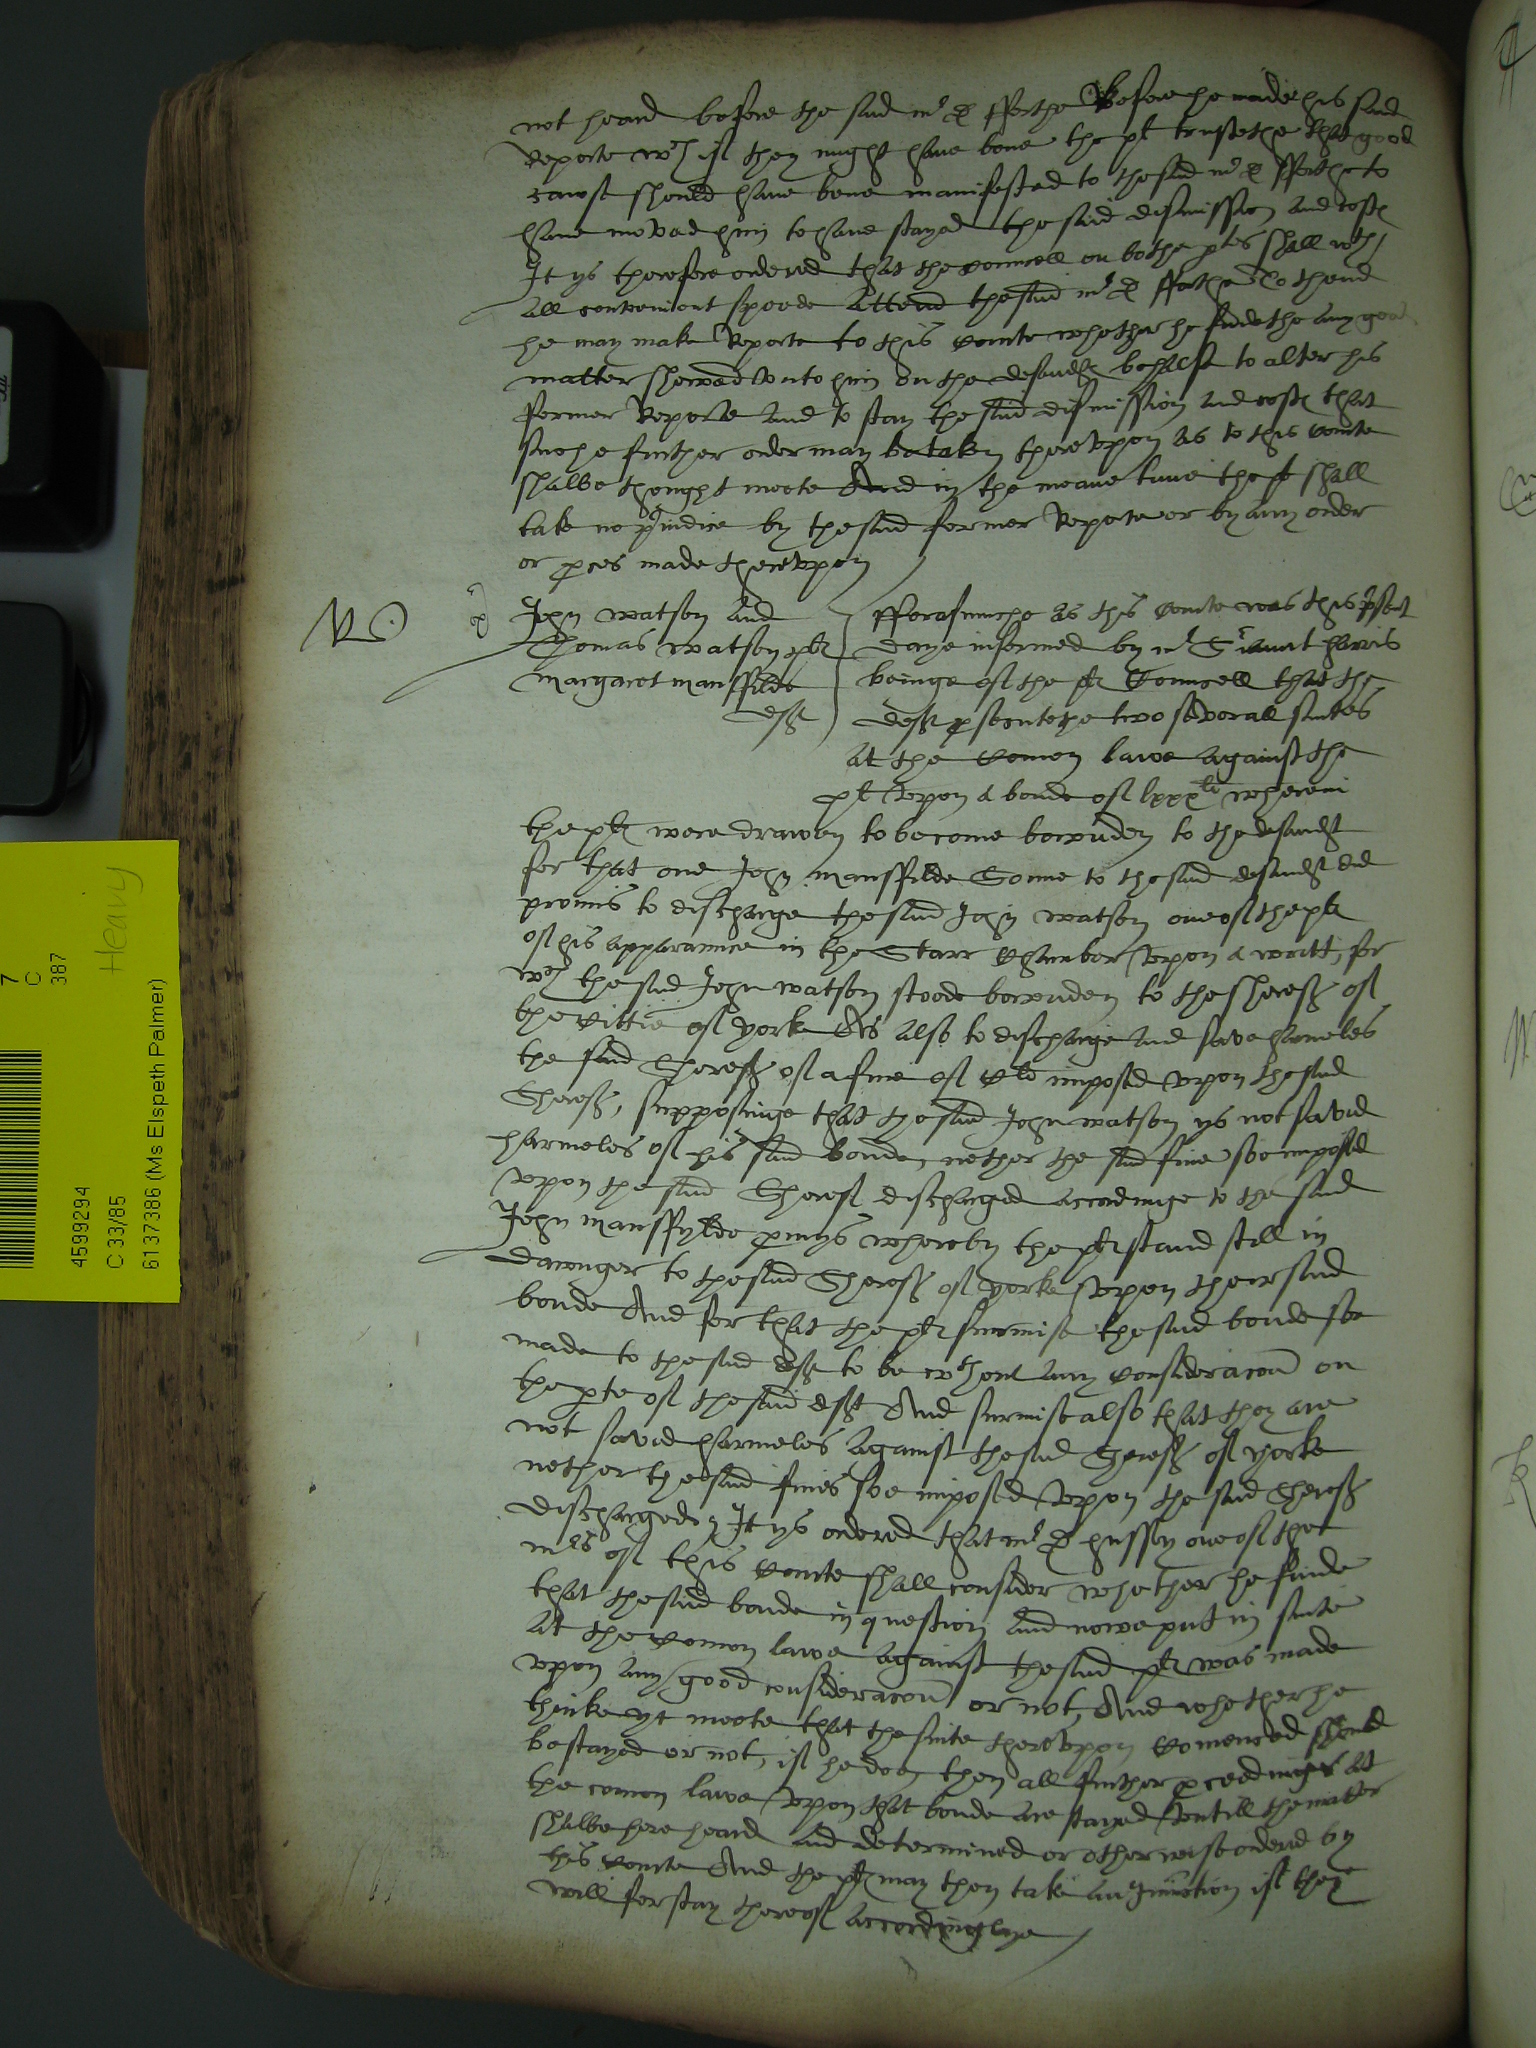 not heard before the said mr d fforthe before he made his said
Reporte wch if they might have bene the pl trusteth that good
cawse should have bene manifested to the said mr d fforthe to
have moved him to have stayed the said dismission and costes
It ys therefore ordered that the councell on bothe ptes shall wth
all convenient speede attend the said mr d fforthe To thend
he may make Reporte to this courte whether he findethe any good
matter shewed unto him on the defendtes behalfe to alter his
former Reporte and to stay the said dismission and costes that
suche further order may be taken thereupon as to this courte
shalbe thought meete And in the meane time the shall
take no preiudice by the said former Reporte or by any order
or pces made thereupon
John watson and
Thomas watson pltes
margaret mansfilde
deft
fforasmuche as this courte was this psent
daye informed by mr Siaunt harris
beinge of the pltes Councell that the
deft psecutethe two severall suites
at the comon lawe against the
plt upon a bonde of lxxxli wherein
the pltes were drawen to become bownden to the defendt
for that one John mansfilde Sonne to the said defendt did
promis to discharge the said John watson one of the pltes
of his apparannce in the Starr Chamber upon a writt, for
wch the said John watson stoode bownden to the Sherefes of
the cittie of york As also to discharge and save harmeles
the said Sherefes of a fine of vli imposed upon the said
Sherefes, supposinge that the said John watson ys not saved
harmeles of his said bonde, nether the said fine soe imposed
upon the said Sherefes discharged accordinge to the said
John mansfylde pmys whereby the pltes stand still in
daunger to the said Sherefes of yorke upon their said
bonde And for that the pltes surmise the said bonde soe
made to the said deft to be wthout any consideracon on
the pte of the said deft And surmise also that they are
not saved harmeles against the said Sherefes of yorke
nether the said fines soe imposed upon the said Sherefes
discharged, It ys ordered that mr d hussey one of the
mrs of this courte shall consider whether he finde
that the said bonde in question and nowe put in suite
at the comon lawe against the said pltes was made
upon any good consideracon or not, And whether he
thinke yt meete that the suite thereupon comenced should
be stayed or not, if he doe then all further pceedinges at
the comon lawe upon that bonde are stayed untill the matter
shalbe here heard and determined or otherwise ordered by
this courte And the pltes may then take an Iniunction if they
will for stay thereof accordinglye
7
C
387
Heavy
4599294
C 33/85
6137386 (Ms Elspeth Palmer)